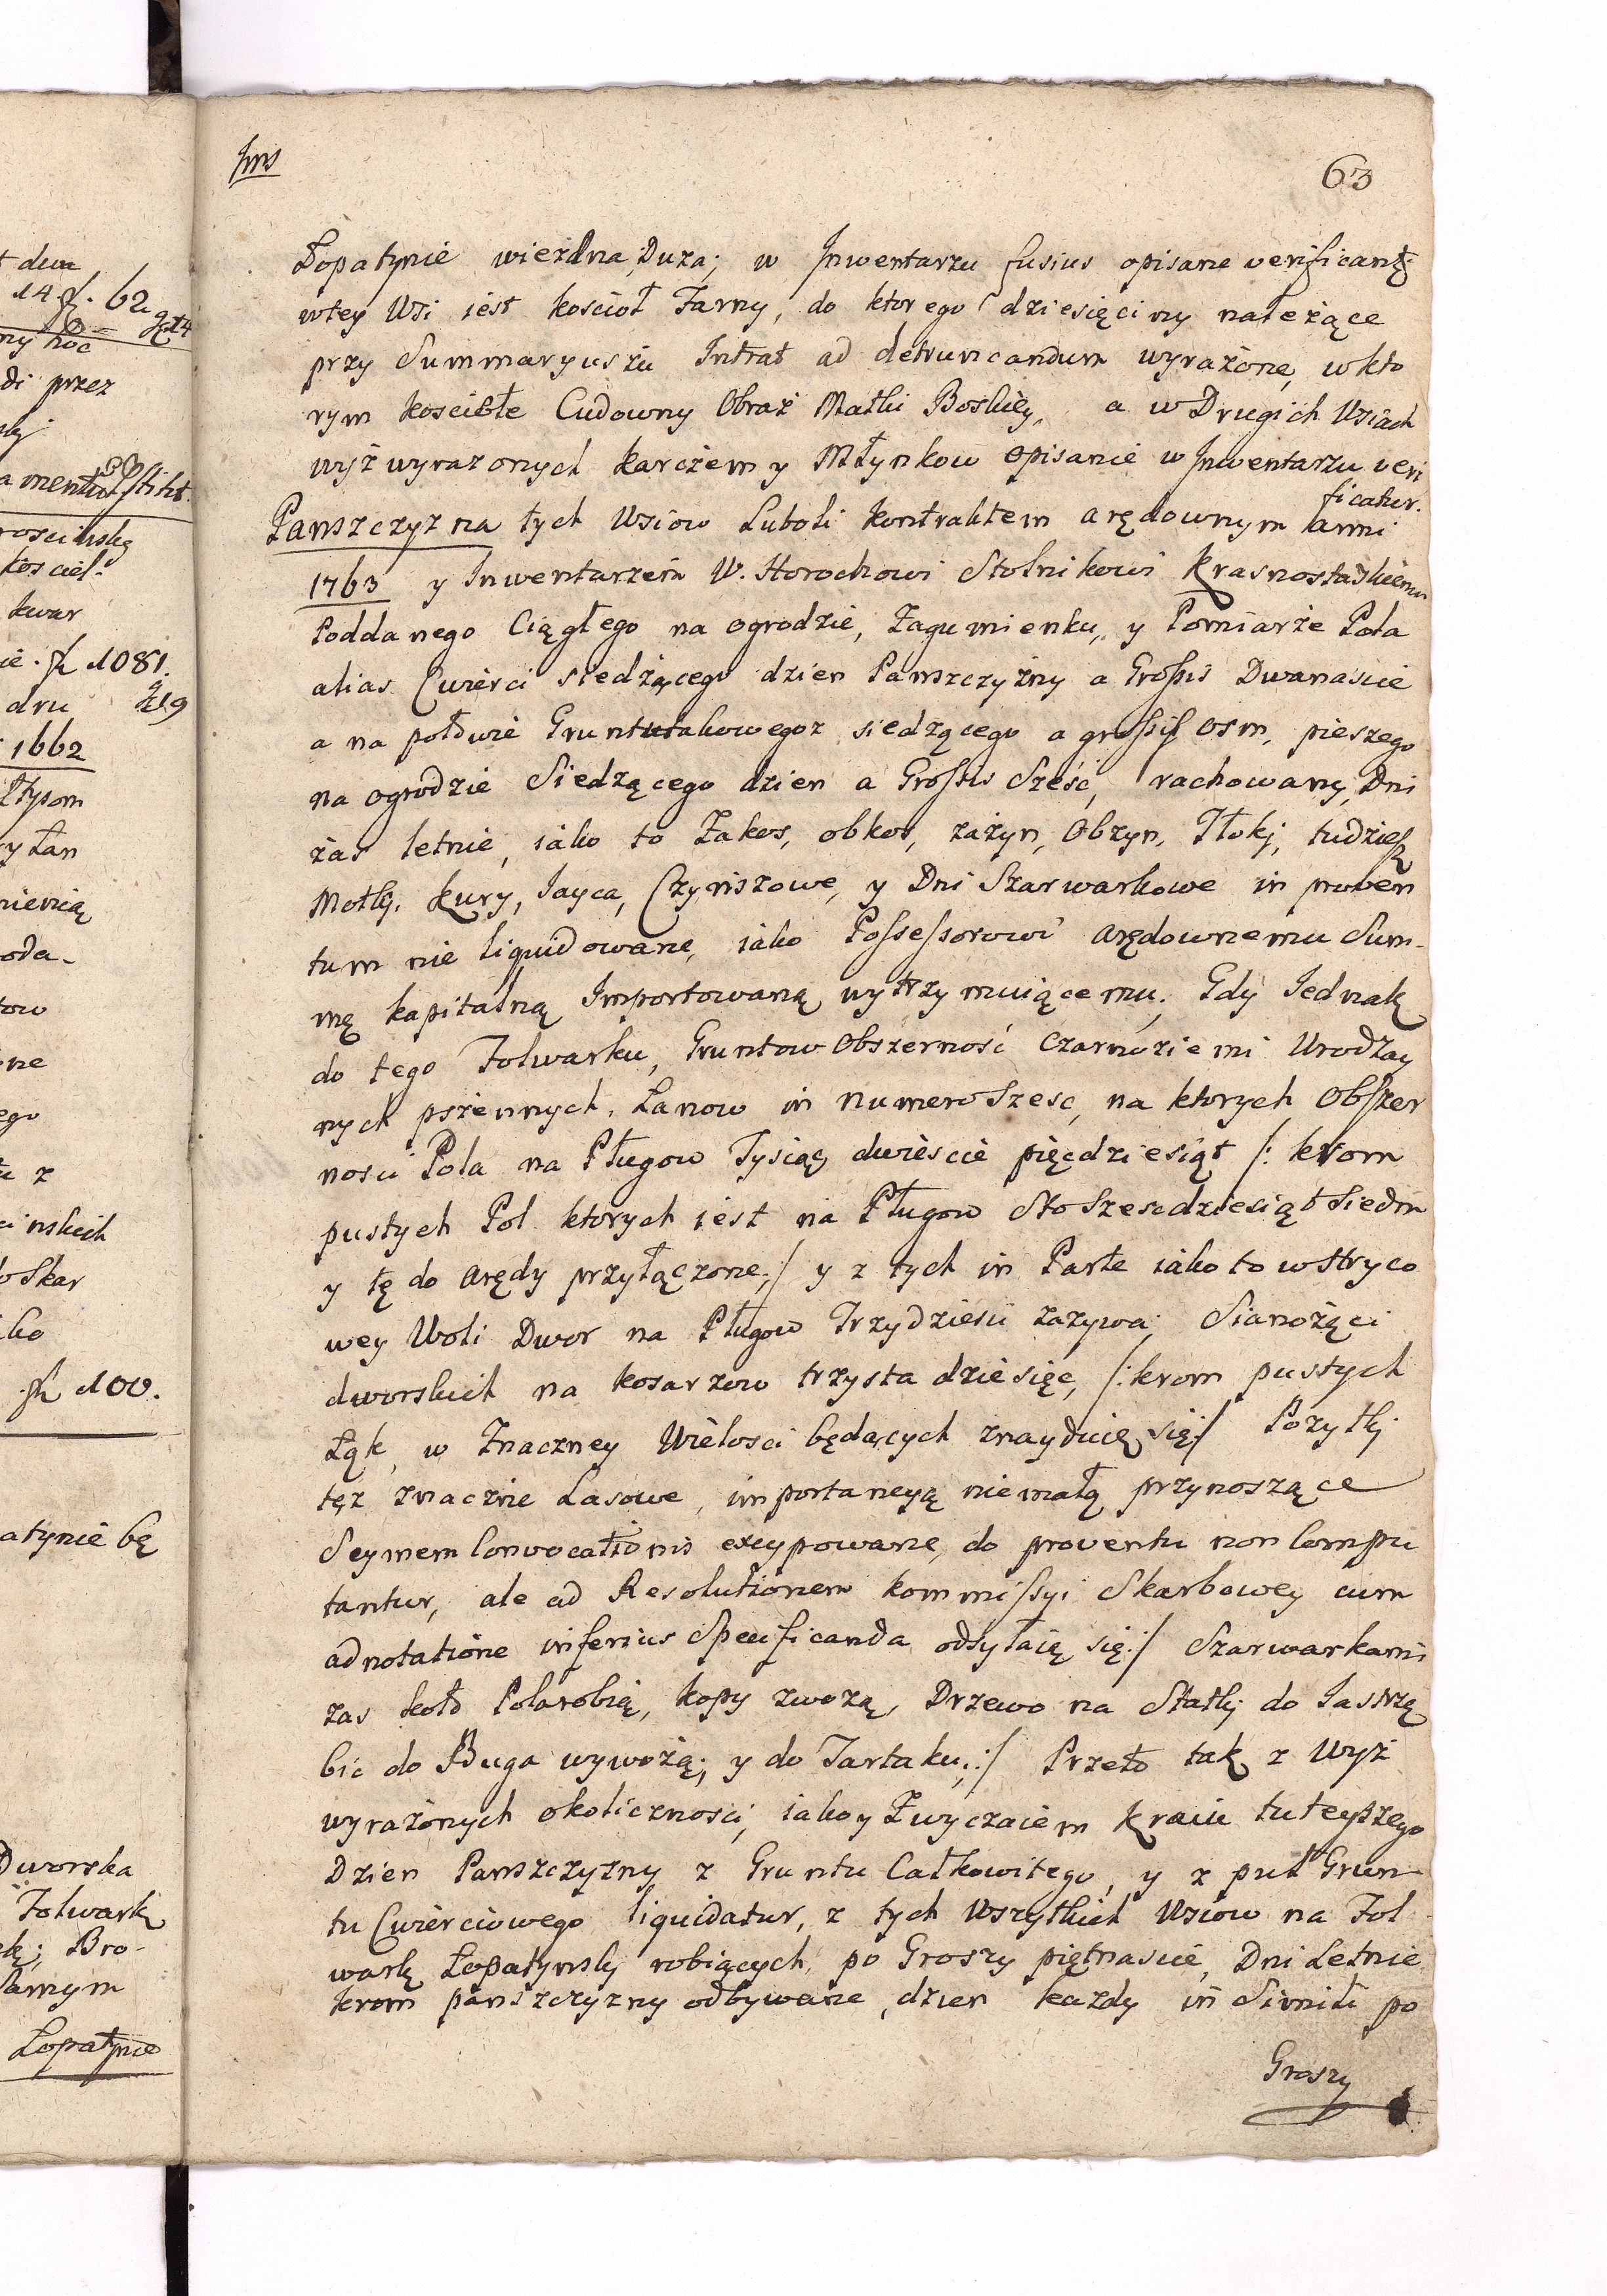 63
Łopatynie wiezdna, Duza; w Jnwentarzu fusius opisane verificant
wtey Wsi iest kościoł Farny, do ktorego dziesięciny nałeżące
przy Summaryuszu Intrat ad detruncandum wyrażone, wkto
rym kosciele Cudowny Obraz Matki Boskiey, a w Drugich Wsiach
wyż wyrazonych karczem y Młynkow opisanie w Jnwentarzu veri
ficatur.
Panszczyzna tych Wsiow Luboli kontraktem arędownym anni
1763 y Jnwentarzem W. Horochowi Stolnikowi Krasnostawskiemu
Poddanego Ciągłego na ogrodzie, Zagumienku, y Pomiarze Pola
alias Cwierci siedzącego dzien Panszczyzny a Grossis Dwanascie
a na połowie Gruntu takowegoz siedzącego a grossis osm, pieszego
na ogrodzie Siedzącego dzien a Grossis Sześć, rachowany, Dni
zas letnie, iako to Zakos, obkos, zażyn, Obzyn, Tłoki, tudziesz
Motki, kury, Jayca, Czynszowe, y Dni Szarwarkowe in proven
tum nie liquidowane, iako Possessorowi arędownemu Sum-
mę kapitalną Importowaną wytrzymuiącemu. Gdy Jednak
do tego Folwarku, Gruntow Obszerność czarnoziemi Urodzay
nych pszennych, Łanow in numero Szesc, na ktorych Obszer
nosci Pola na Pługow Tysiąc dwiescie pięcdziesiąt /: krom
pustych Pol ktorych iest na Pługow Sto Szescdziesiąt Siedm
y tę do arędy przyłączone :/ y z tych in Parte iako to w Stryco
wey Woli Dwor na Pługow Trzydziesci zazywa; Sianożęci
dworskich na kosarzow trzysta dziesięc, /: krom pustych
Łąk, w Znaczney Wielosci będących znayduię się :/ Pozytki
też znaczne Lasowe, importancyą niemałą przynoszące
Seymem Convocationis excypowane, do proventu non Compu
tantur, ale ad Resolutionem kommissyi Skarbowey cum
adnotatione inferius Specificanda odsyłaią się :/ Szarwarkami
zas koło Pola robią, kopy zwożą, Drzewo na Statki do Jastrzę
bic do Buga wywożą; y do Tartaku; :/ Przeto tak z Wyż
wyrażonych okolicznosci, iako y Zwyczaiem kraiu tuteyszego
Dzien Panszczyzny z Gruntu Całkowitego, y z puł Grun
tu Cwierciowego liquidatur, z tych Wszytkich Wsiow na Fol
wark Łopatynski robiących, po Groszy piętnascie, Dni Letnie
krom panszczyzny odbywane, dzien kazdy in Simili po
Groszy